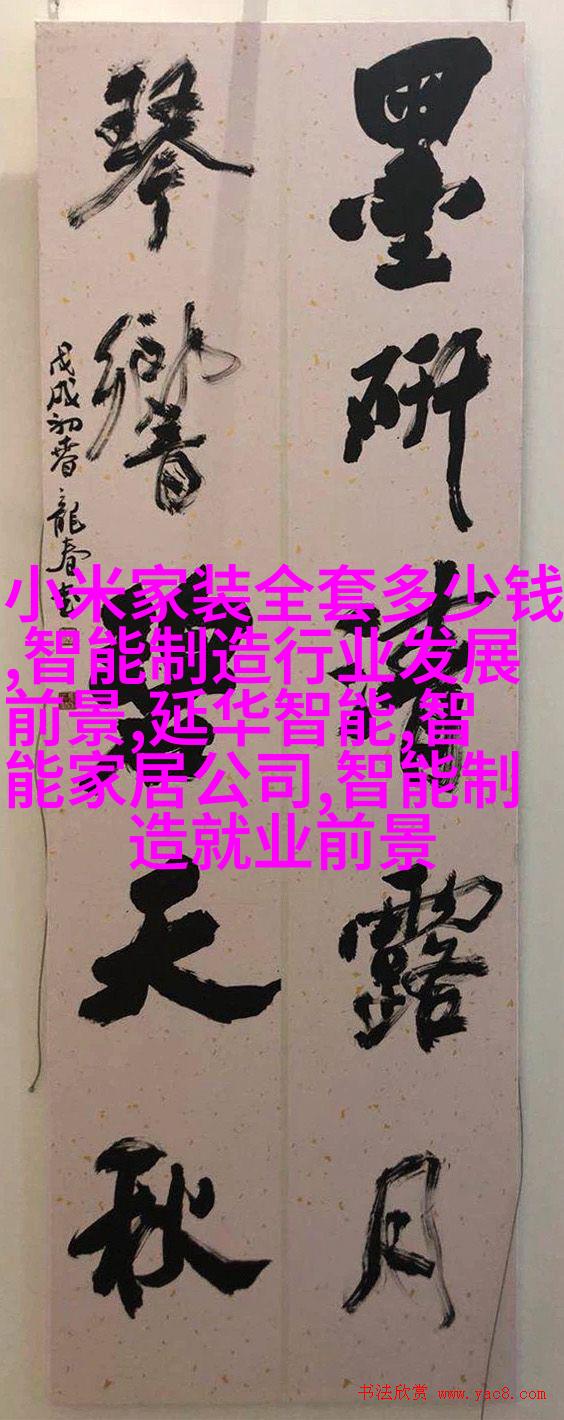 墨研清露月
琴響碧天秋
戊戌初春龍春
小米家装全套多少钱
,智能制造行业发展
前景,延华智能,智
能家居公司,智能制
造就业前景
书法欣赏 www.yac8.com